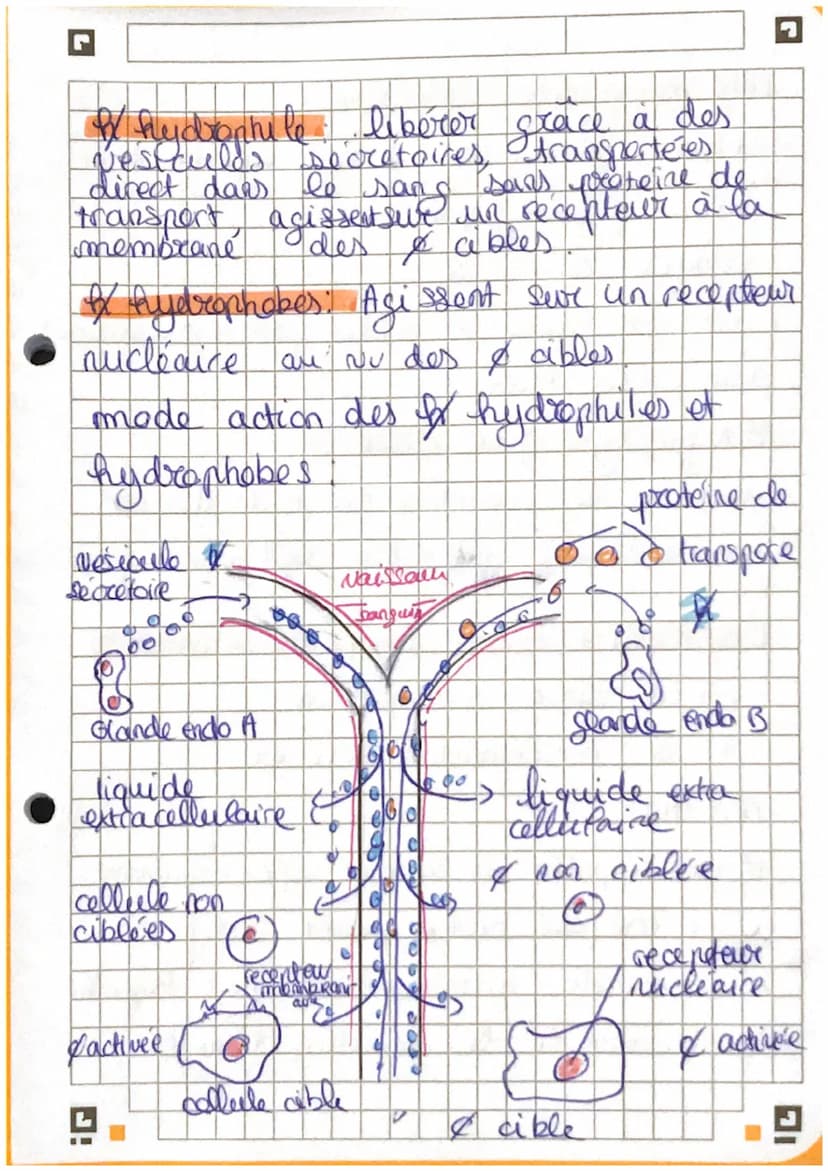 hydrophile: libérer grâce à des
vésiculds sécrétoires, transportées
direct dans le sang sans proteine de
transport, agissent sur un récepteur à la
membrane des ȼ cibles.
hydrophobes: Agissent sur un recepteur
nucléaire au nv des ȼ cibles
mode action des hydrophiles et
hydrophobes:
proteine de
transpore
vesicule
sécrétoire
vaisseau
sanguin
Glande endo A
glande endo B
liquide
extracellulaire
liquide extra
cellulaire
ȼ non ciblée
cellule non
ciblées
recepteur
recepteur
nucléaire
ȼ activée
ȼ activée
cellule cible
ȼ cible